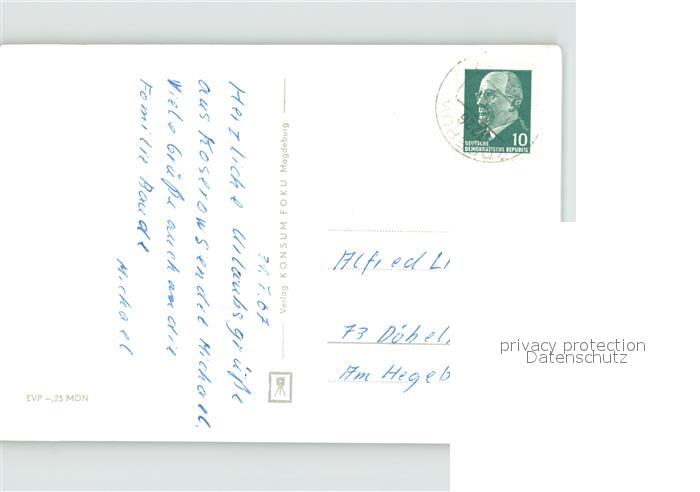 Herzliche Urlaubsgrüße
aus Koserow sendet Michael.
Viele Grüße auch an die
Familie Baude
Michael
31.7.67
Verlag KONSUM FOKU Magdeburg
EVP –,25 MDN
10
DEUTSCHE
DEMOKRATISCHE REPUBLIK
Alfred Li
73 Döbel
Am Hegeb
privacy protection
Datenschutz